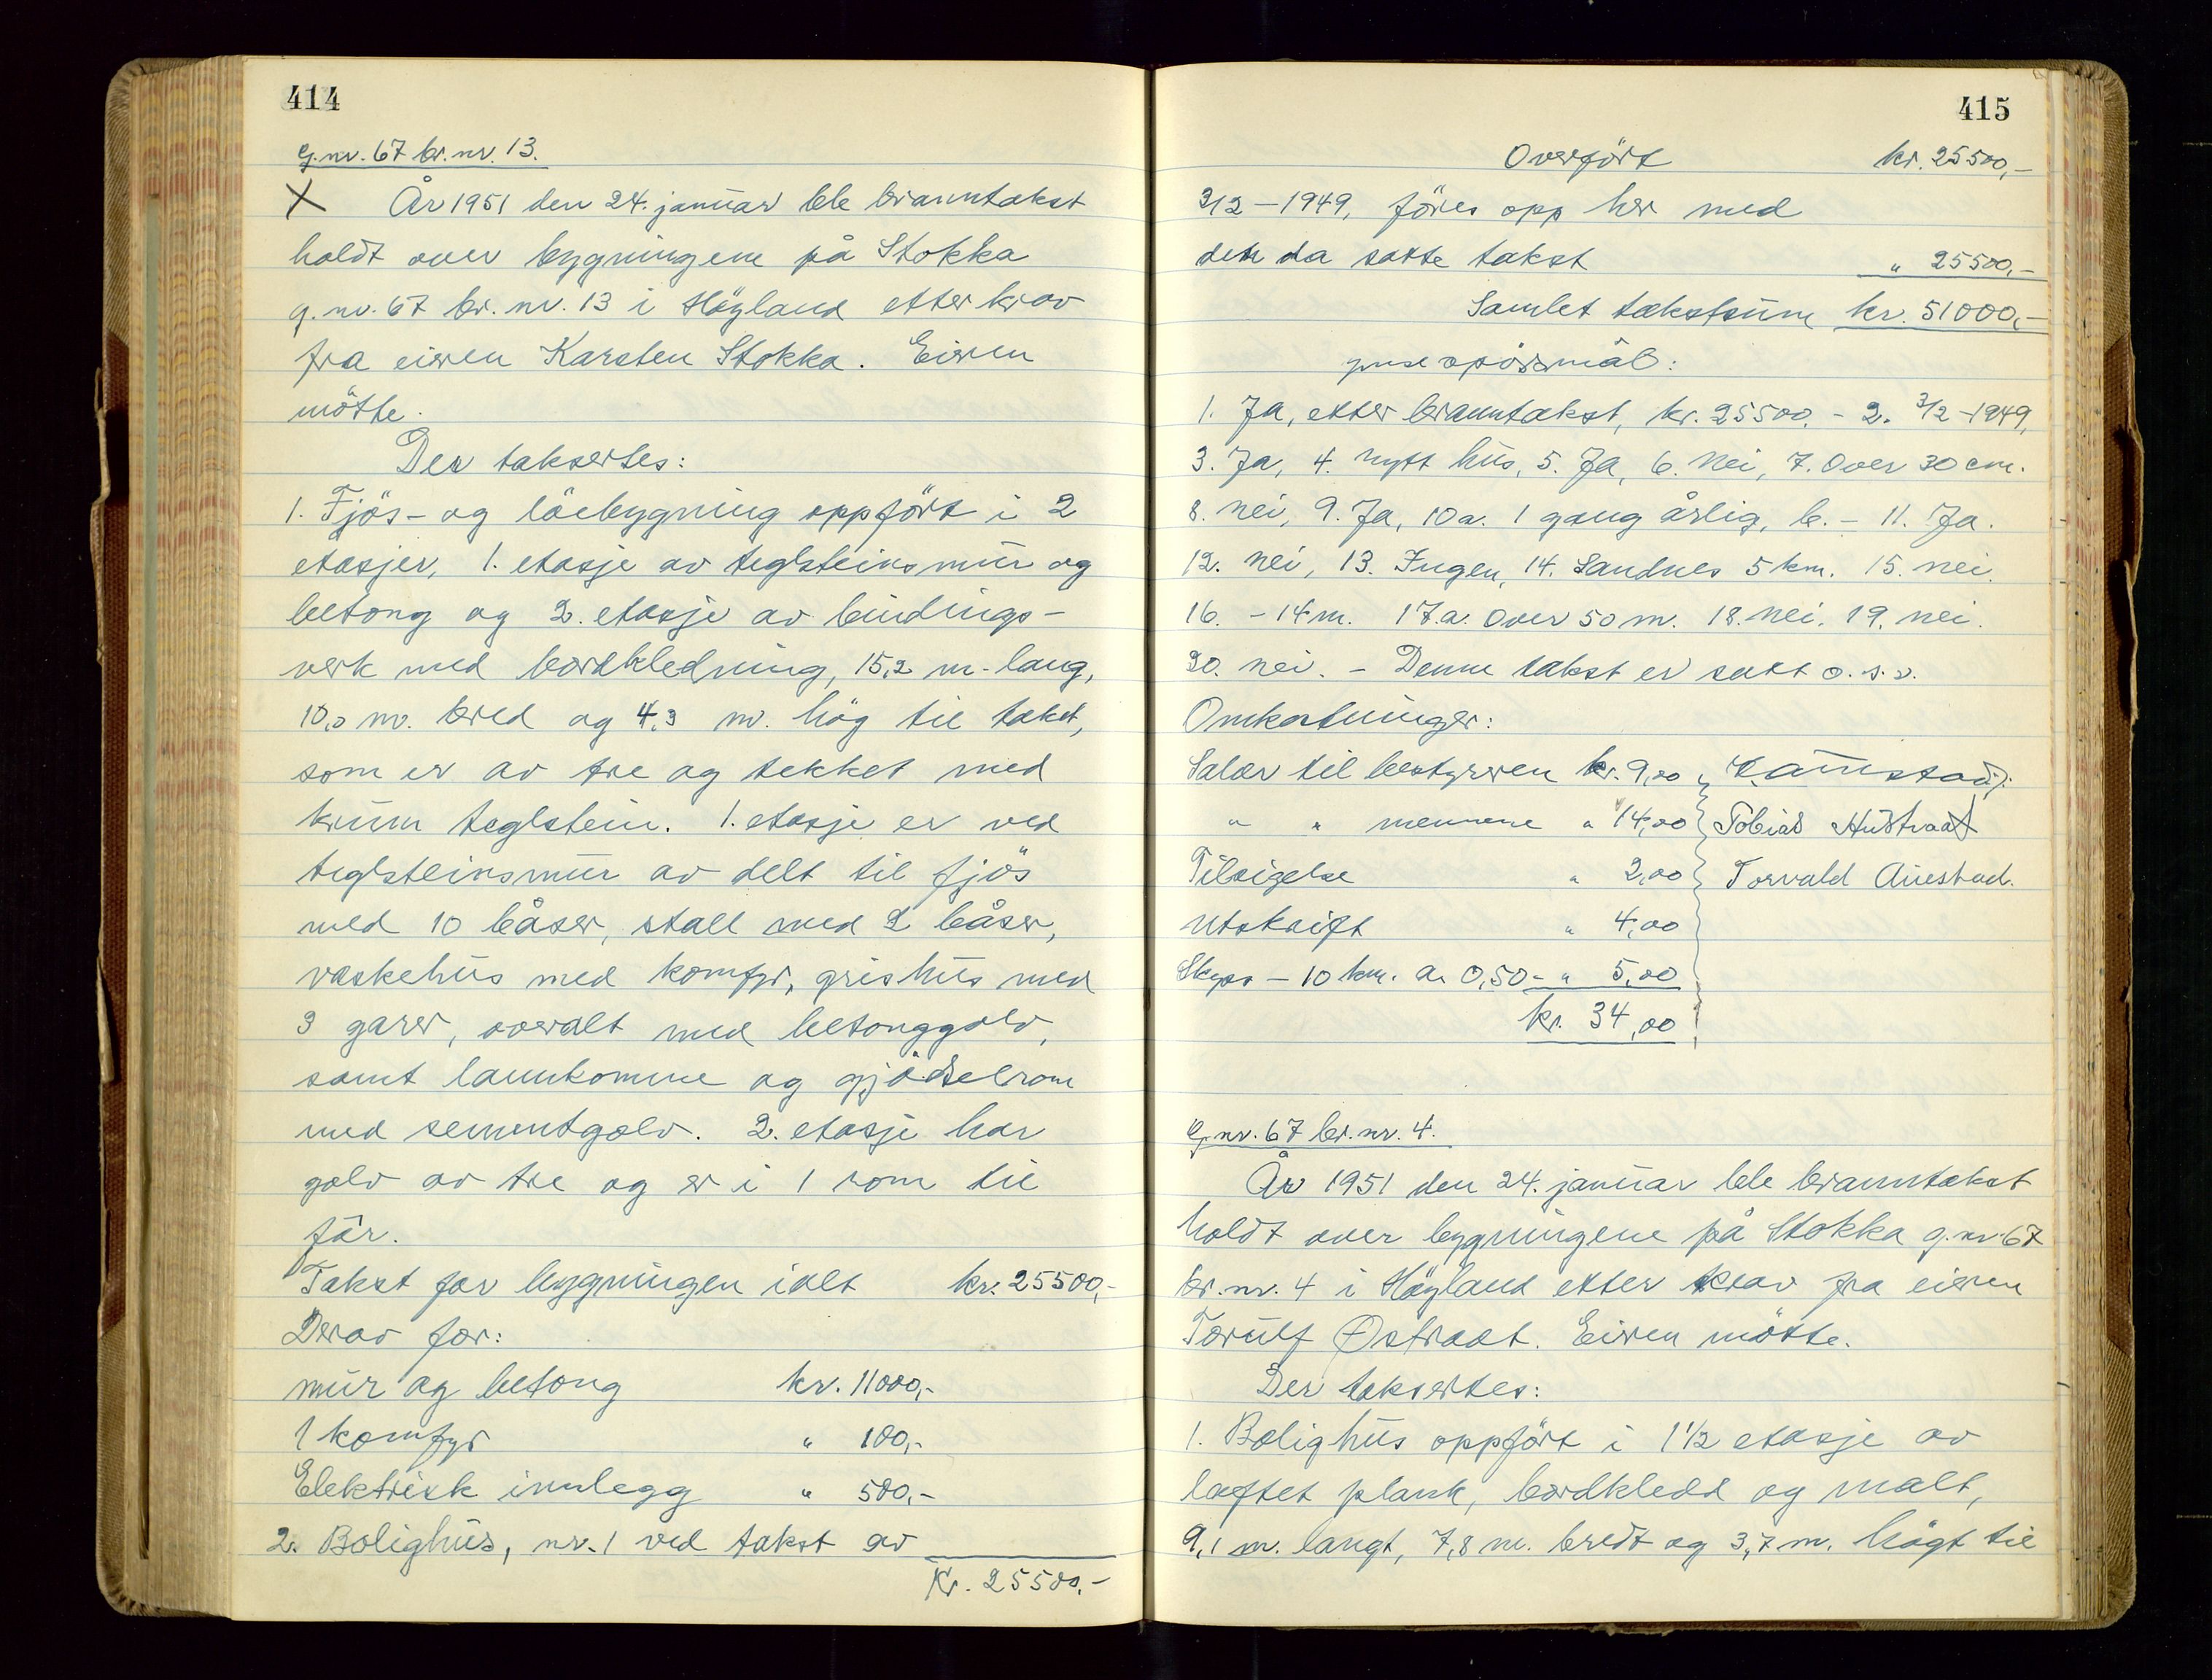 414
G.nr. 67 br.nr. 13.
X År 1951 den 24. januar ble branntakst
holdt over bygningene på Stokka
g.nr. 67 br. nr. 13 i Höyland etter krav
fra eieren Karsten Stokka. Eieren
mötte.
Der taksertes:
1. Fjös- og löebygning oppfört i 2
etasjer, 1. etasje av teglsteinsmur og
betong og 2. etasje av bindings-
verk med bordkledning, 15,2 m. lang,
10,0 m. bred og 4,3 m. hög til taket,
som er av tre og tekket med
krum teglstein. 1. etasje er ved
teglsteinsmur av delt til fjös
med 10 båser, stall med 2 båser,
vaskehus med komfyr, grishus med
3 garer, overalt med betonggolv,
samt lannkomme og gjödselrom
med sementgolv. 2. etasje har
golv av tre og er i 1 rom til
fôr.
Takst for bygningen ialt kr. 25500,-
Derav for:
mur og betong kr. 11000,-
1 komfyr " 100,-
Elektrisk innlegg " 500,-
2. Bolighus, nr. 1 ved takst av
Kr. 25500,-
415
Overfört kr. 25500,-
3/2-1949, föres opp her med
den da satte takst " 25500,-
Samlet takstsum kr. 51000,-
spörsmål:
1. Ja, etter branntakst, kr. 25500,- 2. 3/2-1949,
3. Ja, 4. nytt hus, 5. Ja, 6. nei, 7. Over 30 cm.
8. nei, 9. Ja, 10a. 1 gang årlig, b. - 11. Ja.
12. nei, 13. Ingen, 14. Sandnes 5 km. 15. nei.
16. - 14 m. 17.a. Over 50 m. 18. nei. 19. nei.
20. nei. - Denne takst er satt o.s.v.
Omkostninger:
Salær til bestyreren kr. 9,00
" " mennene " 14,00 Tobias Austraat
Tilsigelse " 2,00 Torvald Auestad.
Utskrift " 4,00
Skyss - 10 km. a 0,50 - " 5,00
kr. 34,00
G.nr. 67 br. nr. 4.
År 1951 den 24. januar ble branntakst
holdt over bygningene på Stokka g.nr. 67
br. nr. 4 i Höyland etter krav fra eieren
Torulf Østraat. Eieren mötte.
Der taksertes:
1. Bolighus oppfört i 1 1/2 etasje av
laftet plank, bordkledd og malt,
9,1 m. langt, 7,8 m. bredt og 3,7 m. högt til